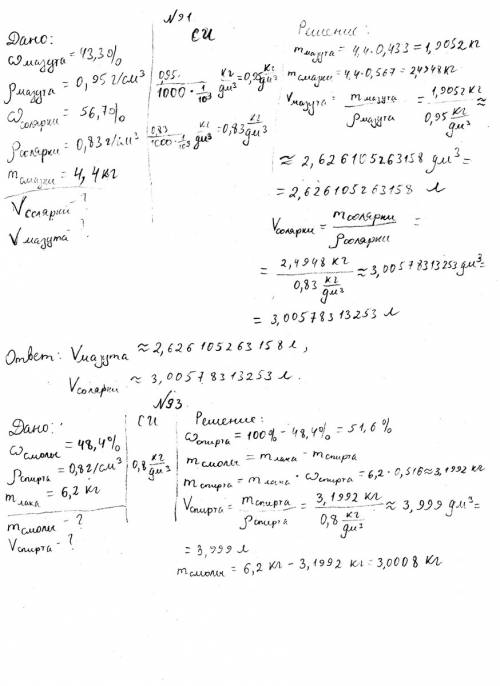 №91
Дано:
ωмазута = 43,3%
ρмазута = 0,95 г/см³
ωсолярки = 56,7%
ρсолярки = 0,83 г/см³
mсмазки = 4,4 кг
Vсолярки - ?
Vмазута - ?
СИ
0,95 / 1000 · 1/10³ кг/дм³ = 0,95 кг/дм³
0,83 / 1000 · 1/10³ кг/дм³ = 0,83 кг/дм³
Решение:
mмазута = 4,4 · 0,433 = 1,9052 кг
mсмазки = 4,4 · 0,567 = 2,4948 кг
Vмазута = mмазута / ρмазута = 1,9052 кг / 0,95 кг/дм³ ≈
≈ 2,626105263158 дм³ =
= 2,626105263158 л
Vсолярки = mсолярки / ρсолярки =
= 2,4948 кг / 0,83 кг/дм³ ≈ 3,00578313253 дм³ =
= 3,00578313253 л
Ответ: Vмазута ≈ 2,626105263158 л,
Vсолярки ≈ 3,00578313253 л.
№93
Дано:
ωсмолы = 48,4%
ρспирта = 0,8 г/см³
mлака = 6,2 кг
mсмолы - ?
Vспирта - ?
СИ
0,8 кг/дм³
Решение:
ωспирта = 100% - 48,4% = 51,6%
mсмолы = mлака - mспирта
mспирта = mлака · ωспирта = 6,2 · 0,516 ≈ 3,1992 кг
Vспирта = mспирта / ρспирта = 3,1992 кг / 0,8 кг/дм³ ≈ 3,999 дм³ =
= 3,999 л
mсмолы = 6,2 кг - 3,1992 кг = 3,0008 кг